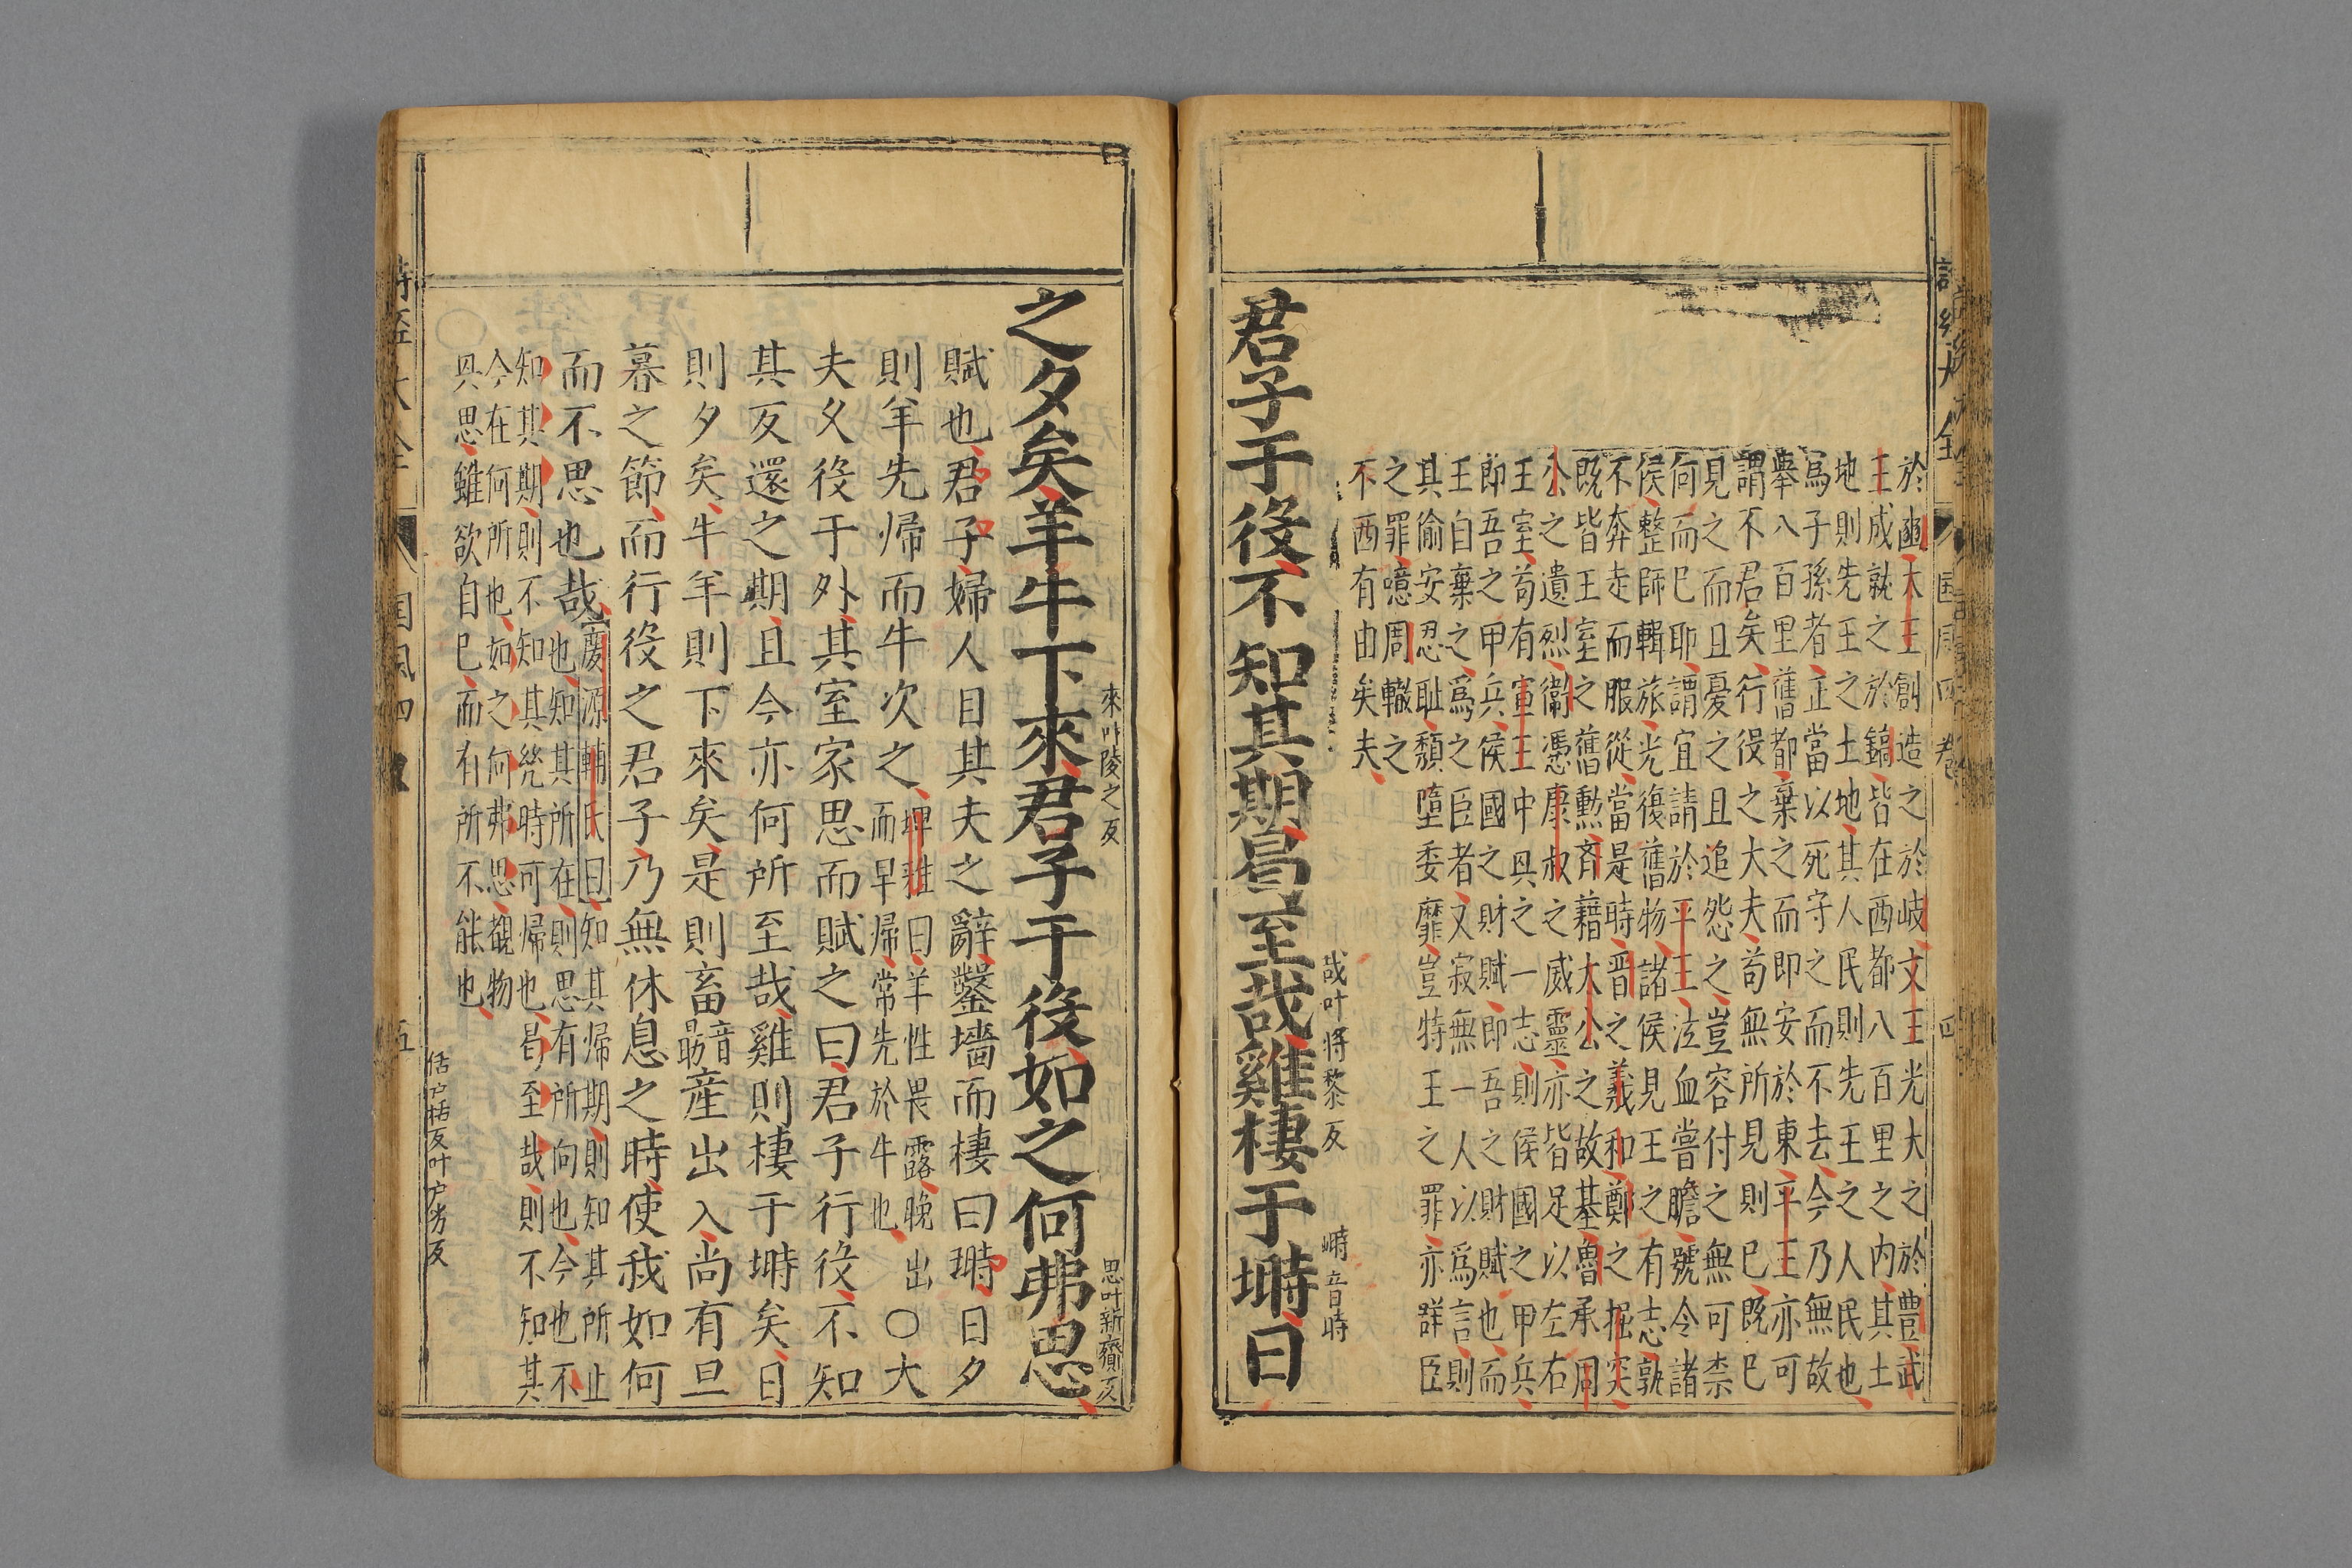 於豳大王創造之於岐文王光大之於豐武
王成就之於鎬皆在西都八百里之內其土
地則先王之土地其人民則先王之人民也
爲子孫者正當以死守之而不去今乃無故
舉八百里舊都棄之而即安於東平王亦可
謂不君矣行役之大夫苟無所見則已既已
見之而且憂之且追怨之豈容付之無可柰
何而已耶謂宜請於平王泣血嘗膽號令諸
侯整師輯旅光復舊物諸侯見王之有志孰
不奔走而服從當是時晉之義和鄭之掘突
既皆王室之舊勳齊藉大公之故基魯承周
公之遺烈衞憑康叔之威靈亦皆足以左右
王室苟有宣王中興之一志則侯國之甲兵
即吾之甲兵侯國之財賦即吾之財賦也而
王自棄之爲之臣者又寂無一人以爲言則
其偷安忍恥頹墮委靡豈特王之罪亦群臣
之罪噫周轍之
不西有由矣夫
哉叶將黎反
塒音時
君子于役不知其期曷至哉雞棲于塒日
來叶陵之反
思叶新齎反
之夕矣羊牛下來君子于役如之何弗思
賦也君子婦人目其夫之辭鑿墻而棲曰塒日夕
則羊先歸而牛次之埤雅曰羊性畏露晚出而早歸常先於牛也○大
夫久役于外其室家思而賦之曰君子行役不知
其反還之期且今亦何所至哉雞則棲于塒矣日
則夕矣牛羊則下來矣是則畜音勗產出入尚有旦
暮之節而行役之君子乃無休息之時使我如何
而不思也哉慶源輔氏曰知其歸期則知其所止
也知其所在則思有所向也今也不
知其期則不知其幾時可歸也曷至哉則不知其
今在何所也如之何弗思覩物
興思雖欲自已而有所不能也
佸户括反叶户劣反
詩經大全
國風四卷
四
五